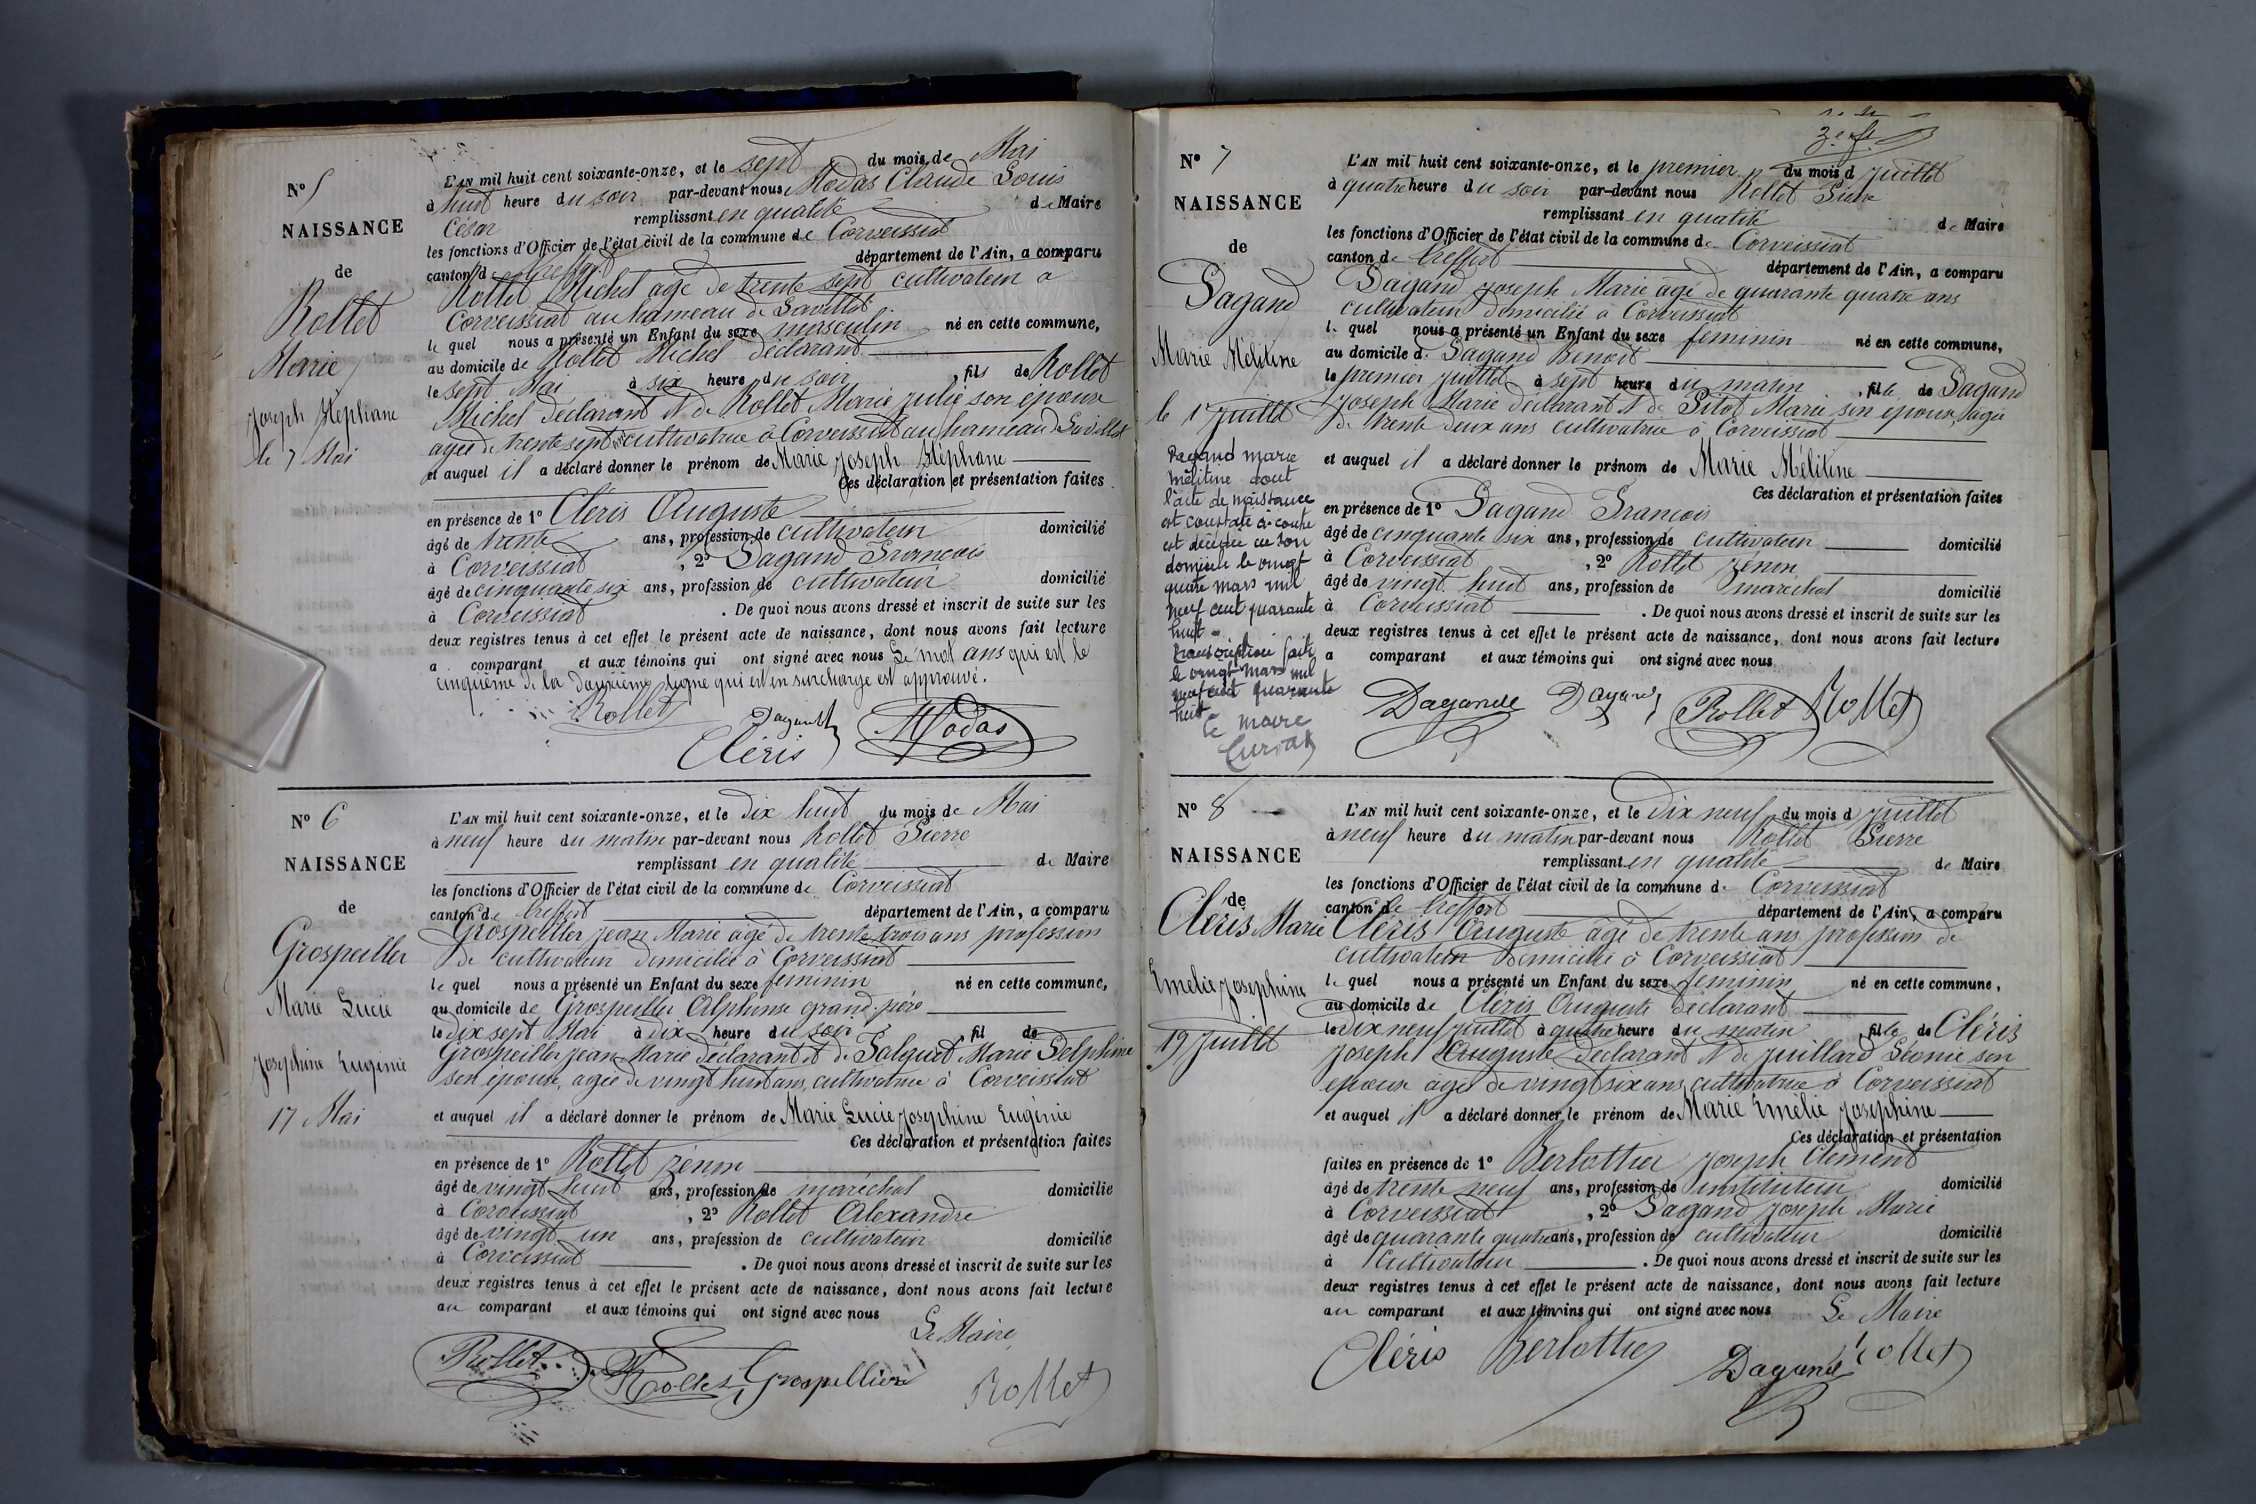 N° 5
NAISSANCE
de
Rollet
Marie
Joseph Stéphane
le 7 Mai
L'AN mil huit cent soixante-onze, et le sept du mois de Mai
à huit heure du soir par-devant nous Modas Claude Louis
César remplissant en qualité de Maire
les fonctions d'Officier de l'état civil de la commune de Corveissiat
canton de Treffort département de l'Ain, a comparu
Rollet Michel agé de trente sept cultivateur a
Corveissiat au hameau de Savillat
le quel nous a présenté un Enfant du sexe masculin né en cette commune,
au domicile de Rollet Michel déclarant
le sept Mai à six heure du soir, fils de Rollet
Michel déclarant & de Rollet Marie julie son épouse
agée de trente sept ans cultivatrice à Corveissiat au hameau de Savillat
et auquel il a déclaré donner le prénom de Marie Joseph Stéphane
Ces déclaration et présentation faites
en présence de 1° Cléris Auguste
âgé de trente ans, profession de cultivateur domicilié
à Corveissiat, 2° Dagand Francois
âgé de cinquante six ans, profession de cultivateur domicilié
à Corveissiat. De quoi nous avons dressé et inscrit de suite sur les
deux registres tenus à cet effet le présent acte de naissance, dont nous avons fait lecture
a comparant et aux témoins qui ont signé avec nous Le mot ans qui est le
cinquième de la douzième ligne qui est en surcharge est approuvé.
Rollet
Dagand
Cléris
Modas
N° 6
NAISSANCE
de
Grospellier
Marie Lucie
Josephine Eugénie
17 Mai
L'AN mil huit cent soixante-onze, et le dix huit du mois de Mai
à neuf heure du matin par-devant nous Rollet Pierre
remplissant en qualité de Maire
les fonctions d'Officier de l'état civil de la commune de Corveissiat
canton de Treffort département de l'Ain, a comparu
Grospellier jean Marie agé de trente trois ans profession
de cultivateur domicilié à Corveissiat
le quel nous a présenté un Enfant du sexe feminin né en cette commune,
au domicile de Grospellier Alphonse grand-père
le dix sept Mai à dix heure du soir, fil de
Grospeiller jean Marie déclarant et de Marie Delphine
son épouse, agée de vingt huit ans, cultivatrice à Corveissiat
et auquel il a déclaré donner le prénom de Marie Lucie Josephine Eugénie
Ces déclaration et présentation faites
en présence de 1° Rollet Zénon
âgé de vingt huit ans, profession de maréchal domicilié
à Corveissiat, 2° Rollet Alexandre
âgé de vingt un ans, profession de cultivateur domicilié
à Corveissiat. De quoi nous avons dressé et inscrit de suite sur les
deux registres tenus à cet effet le présent acte de naissance, dont nous avons fait lecture
au comparant et aux témoins qui ont signé avec nous
Le Maire
Rollet Rollet Grospellier Rollet
N° 7
NAISSANCE
de
Dagand
Marie Mélitine
le 1er juillet
Dagand marie
mélitine dont
l'acte de naissance
est constaté ci-contre
est décédée en son
domicile le vingt
quatre mars mil
neuf cent quarante
huit
transcription faite
le vingt mars mil
neuf cent quarante
huit
Le maire
L'AN mil huit cent soixante-onze, et le premier du mois d juillet
à quatre heure du soir par-devant nous Rollet Pierre
remplissant en qualité de Maire
les fonctions d'Officier de l'état civil de la commune de Corveissiat
canton de Treffort département de l'Ain, a comparu
Dagand Joseph Marie agé de quarante quatre ans
cultivateur domicilié à Corveissiat
le quel nous a présenté un Enfant du sexe feminin né en cette commune,
au domicile de Dagand Benoit
le premier juillet à sept heure du matin, fille de Dagand
Joseph Marie déclarant & de Pitot Marie son épouse, agée
de trente deux ans cultivatrice à Corveissiat
et auquel il a déclaré donner le prénom de Marie Mélitine
Ces déclaration et présentation faites
en présence de 1° Dagand Francois
âgé de cinquante six ans, profession de cultivateur domicilié
à Corveissiat, 2° Rollet Zénon
âgé de vingt huit ans, profession de maréchal domicilié
à Corveissiat. De quoi nous avons dressé et inscrit de suite sur les
deux registres tenus à cet effet le présent acte de naissance, dont nous avons fait lecture
a comparant et aux témoins qui ont signé avec nous
Dagande Dagand Rollet Rollet
N° 8
NAISSANCE
de
Cléris Marie
Emelie Josephine
19 Juillet
L'AN mil huit cent soixante-onze, et le dix neuf du mois d juillet
à neuf heure du matin par-devant nous Rollet Pierre
remplissant en qualité de Maire
les fonctions d'Officier de l'état civil de la commune de Corveissiat
canton de Treffort département de l'Ain, a comparu
Cléris Auguste agé de trente ans profession de
cultivateur domicilié à Corveissiat
le quel nous a présenté un Enfant du sexe feminin né en cette commune,
au domicile de Cléris Auguste déclarant
le dix neuf juillet à quatre heure du matin, fille de Cléris
Joseph Auguste déclarant & de Juillard Léonie son
épouse agée de vingt six ans cultivatrice à Corveissiat
et auquel il a déclaré donner le prénom de Marie Emélie Josephine
Ces déclaration et présentation
faites en présence de 1° Berlottier Joseph Clément
âgé de trente neuf ans, profession de instituteur domicilié
à Corveissiat, 2° Dagand Joseph Marie
âgé de quarante quatre ans, profession de cultivateur domicilié
à Cultivateur. De quoi nous avons dressé et inscrit de suite sur les
deux registres tenus à cet effet le présent acte de naissance, dont nous avons fait lecture
au comparant et aux témoins qui ont signé avec nous Le Maire
Cléris Berlottier Dagand Rollet